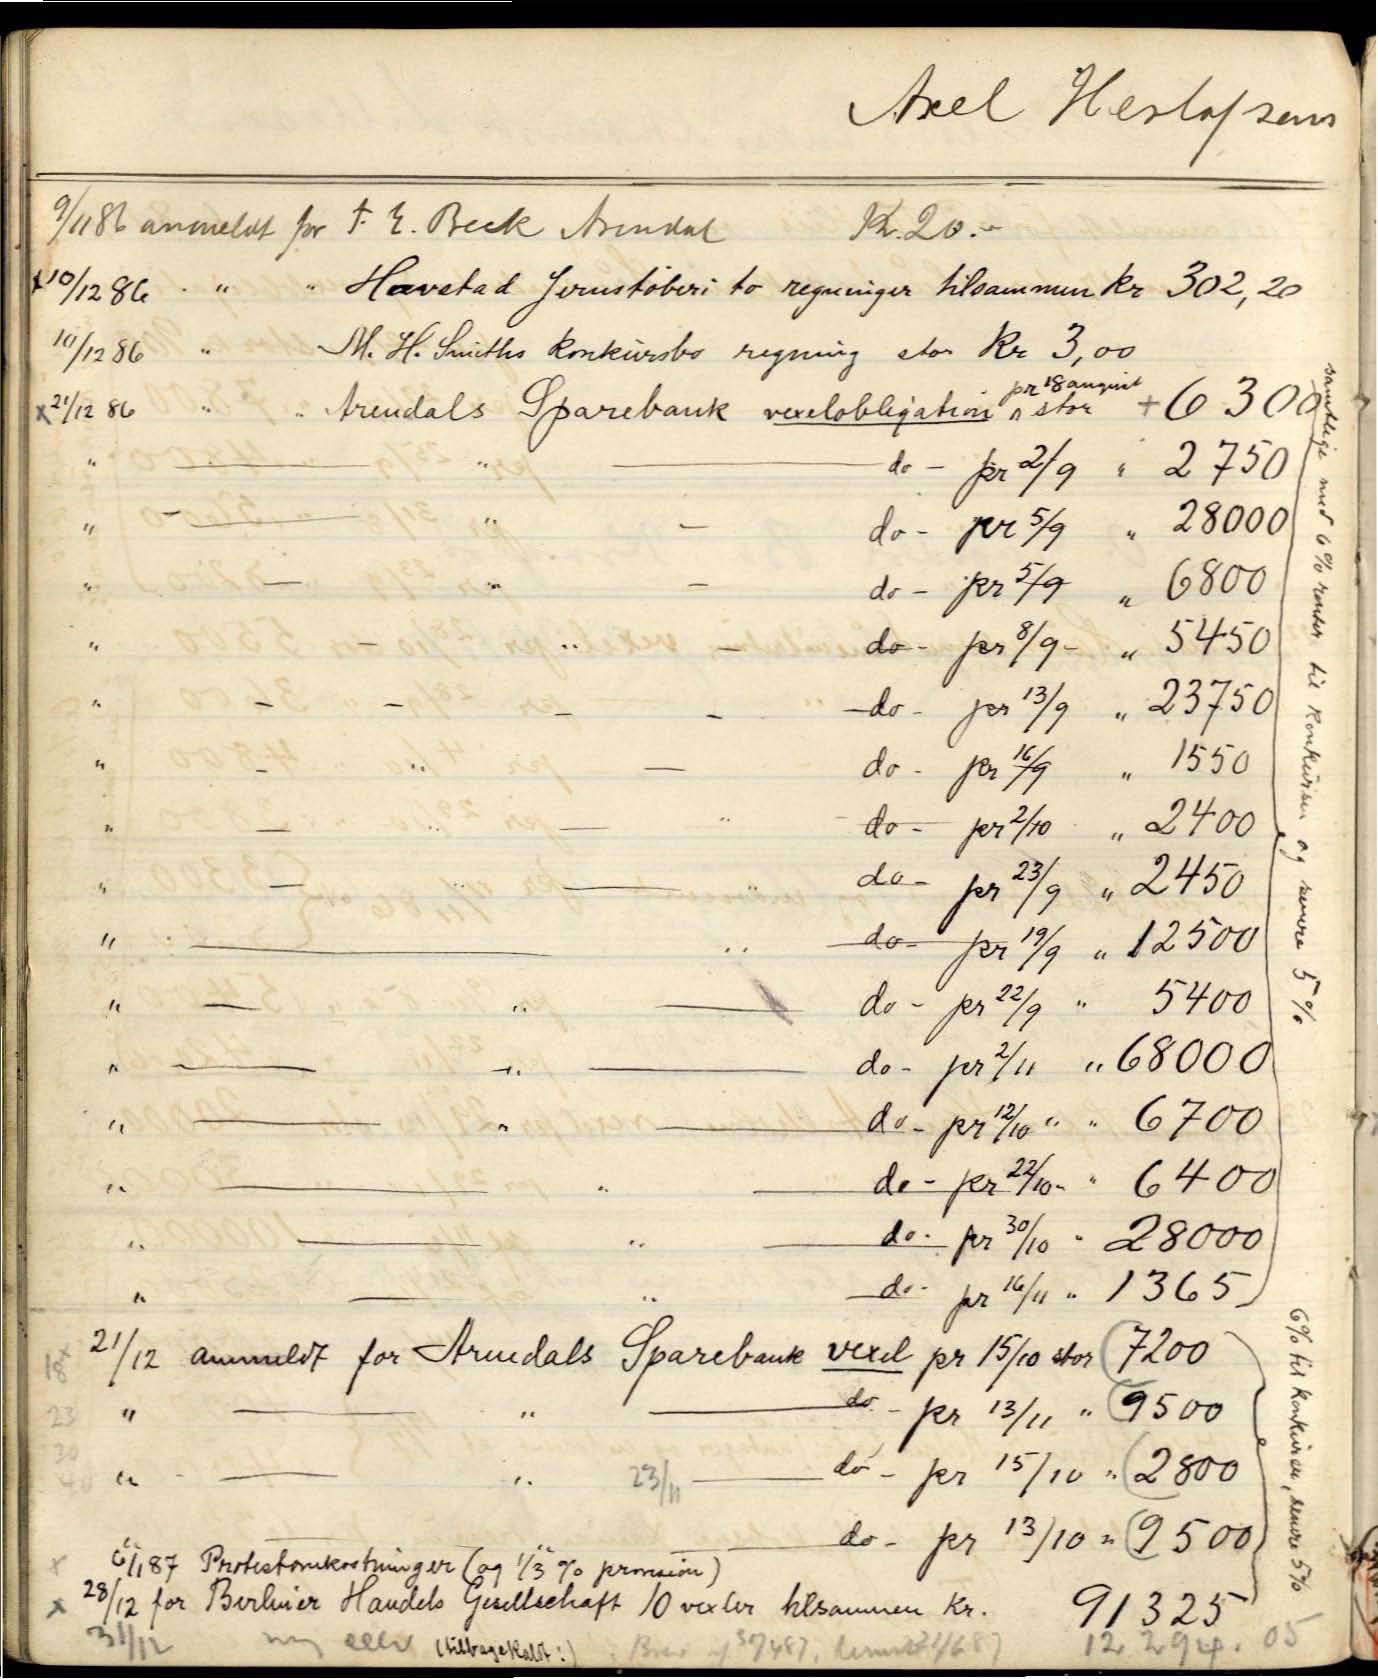 Axel Herlofsens
9/11 86 anmeldt for F. E. Beck Arendal Kr. 20.-
x 10/12 86 " " Havstad Jernstøberi to regninger tilsammen Kr 302,20
10/12 86 " M. H. Smiths konkursbo regning stor Kr 3,00
x 21/12 86 " " Arendals Sparebank vexelobligation pr 18 august stor + 6300
" " do - pr 2/9 " 2750
" " - do - pr 5/9 " 28000
" - " - do - pr 5/9 " 6800
" - " - do - pr 8/9 - " 5450
" - - - - do - pr 13/9 " 23750
" - - do - pr 16/9 " 1550
" - " - " do - pr 2/10 " 2400
" - " - " do - pr 23/9 " 2450
" - " do - pr 19/9 " 12500
" - " - do - pr 22/9 " 5400
" - " - do - pr 2/11 " 68000
" - " - do - pr 12/10 " " 6700
" - " - do - pr 22/10 - " 6400
" - " - do - pr 30/10 " 28000
" - " - do - pr 16/11 " 1365
samtlige med 6% renter til konkursen og senere 5%
18 x 21/12 anmeldt for Arendals Sparebank vexel pr 15/10 stor 7200
23 " - " - do - pr 13/11 " 9500
30
40 " - " 23/11 - do - pr 15/10 " 2800
" " do - pr 13/10 " 9500
6% til konkursen, senere 5%
x 6/1 87 Protestomkostninger (og 1/3 % provision)
x 28/12 for Berliner Handels Gesellschaft 10 vexler tilsammen kr. 91325
31/12 (tilbagekaldt:) 12 294. 05